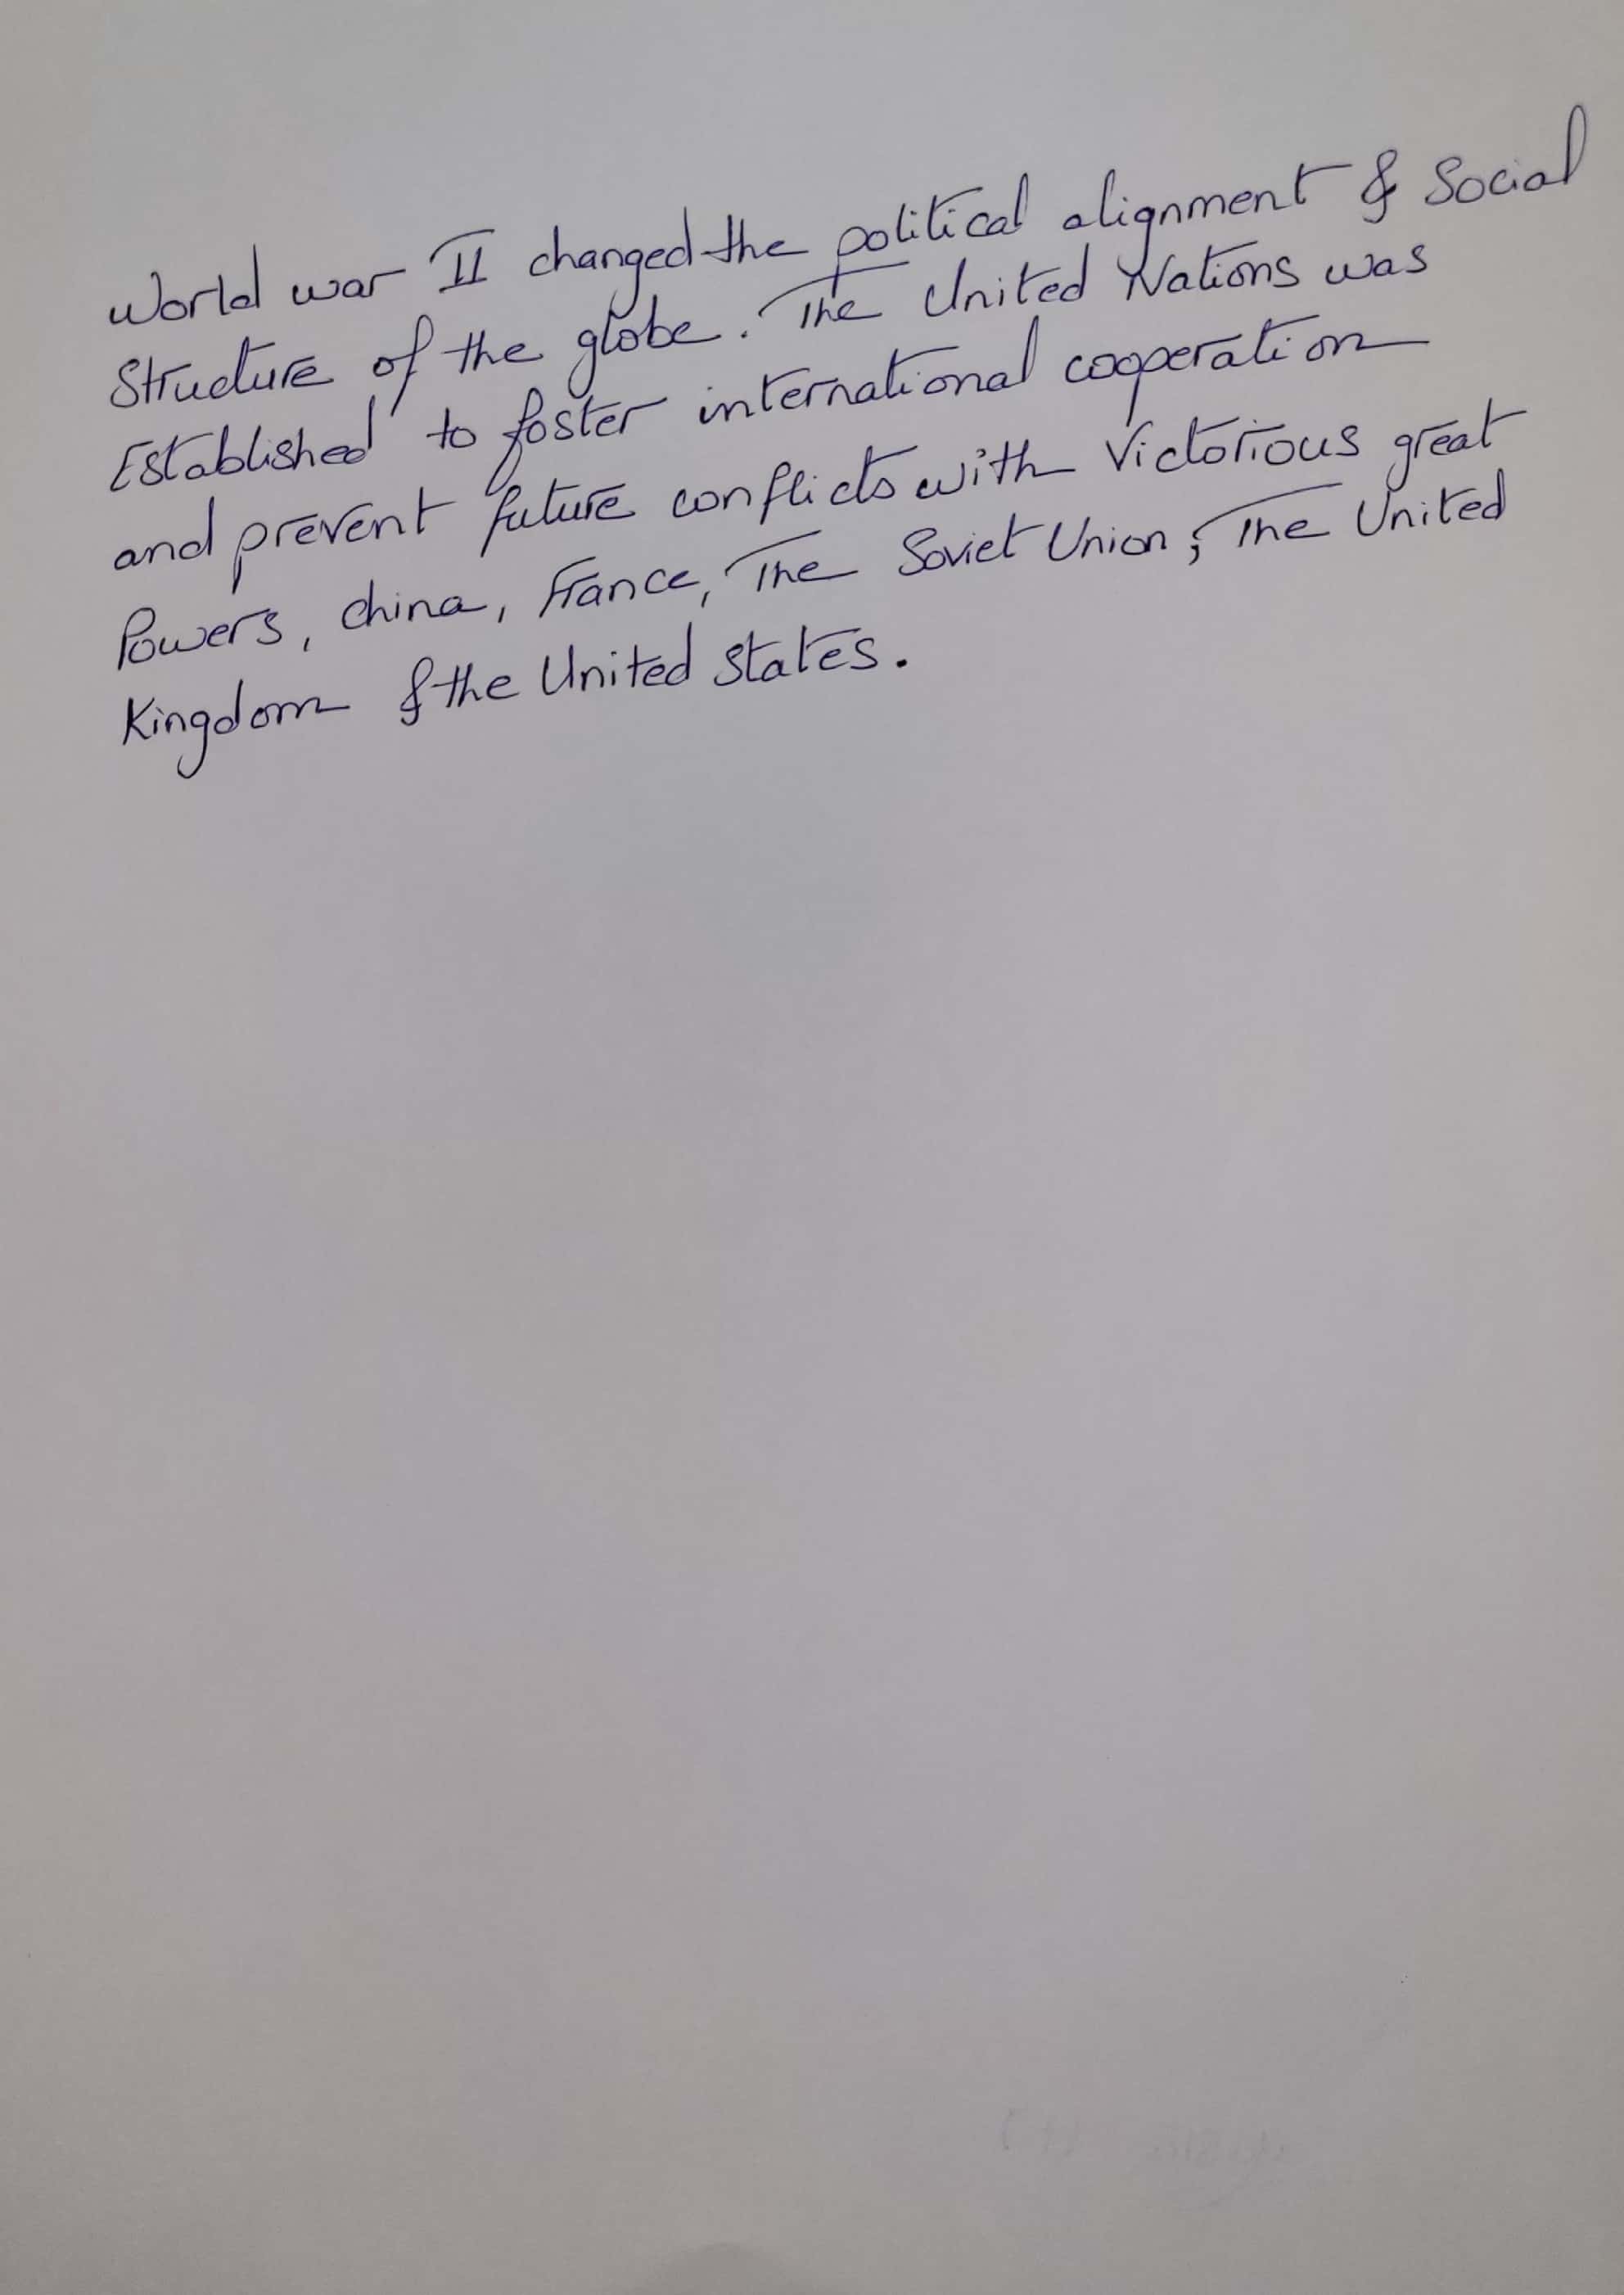 World war II changed the political alignment & Social
Structure of the globe. The United Nations was
Established to foster international cooperation
and prevent future conflicts with Victorious great
Powers, china, France, The Soviet Union, The United
Kingdom & the United States.